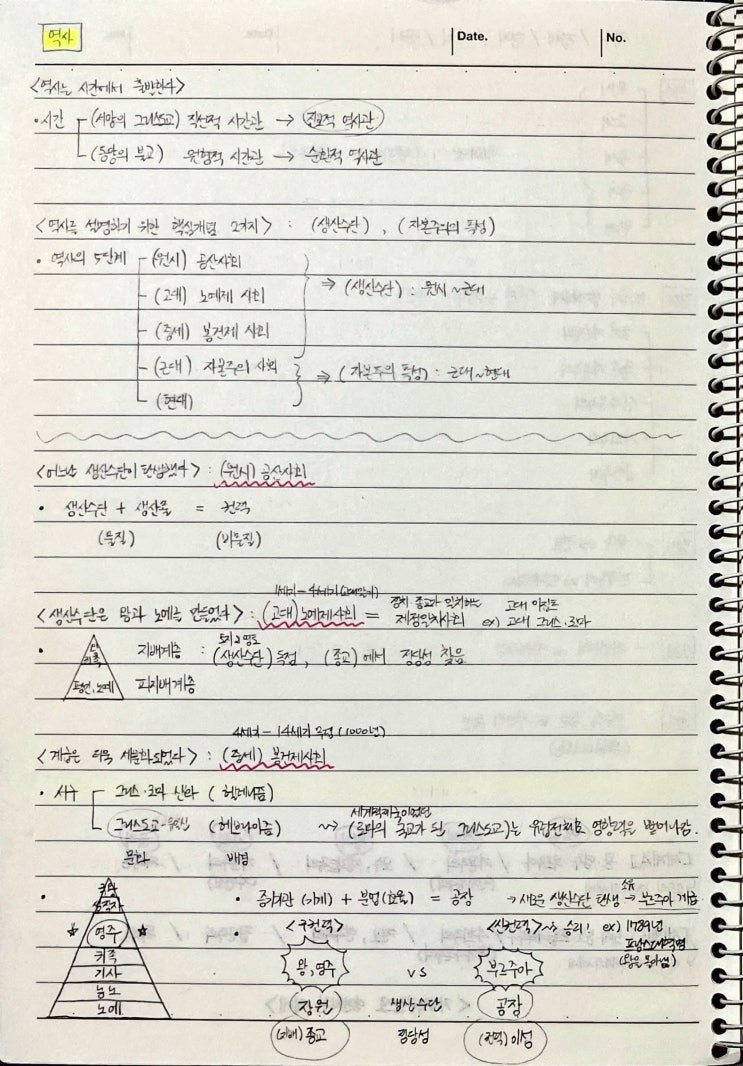 역사
Date. No.
<역사는 시간에서 출발한다>
• 시간 (서양의 그리스도교) 직선적 시간관 → 진보적 역사관
(동양의 불교) 원형적 시간관 → 순환적 역사관
<역사를 설명하기 위한 핵심개념 2가지> : (생산수단), (자본주의의 특성)
• 역사의 5단계 (원시) 공산사회
(고대) 노예제 사회 ⇒ (생산수단) : 원시~근대
(중세) 봉건제 사회
(근대) 자본주의 사회 ⇒ (자본주의 특성) : 근대~현대
(현대)
<어느날 생산수단이 탄생했다> : (원시) 공산사회
• 생산수단 + 생산물 = 권력
(물질) (비물질)
1세기-4세기
정치 종교가 일치하는 고대 이집트
<생산수단은 왕과 노예를 만들었다> : (고대) 노예제사회 = 제정일치사회 ex) 고대 그리스·로마
토지와 영토
• 왕 귀족 지배계층 : (생산수단) 독점, (종교)에서 정당성 찾음
평민, 노예 피지배계층
4세기 - 14세기 (1000년)
<계급은 더욱 세분화되었다> : (중세) 봉건제사회
• 서구 그리스·로마 신화 (헬레니즘)
세계적제국이었던
그리스도교 (헤브라이즘) ⇝ (로마의 국교가 된 그리스도교)는 유럽전체로 영향력을 뻗어나감.
문화 배경
• 왕 성직자 • 증기기관 (기계) + 분업(효율) = 공장 → 새로운 생산수단 탄생 → 부르주아 계급
소유
☆ 영주 ☆ • <구권력> <신권력> ⇝ 승리! ex) 1789년
프랑스대혁명
귀족 왕, 영주 vs 부르주아
기사
농노 장원 생산수단 공장
노예
(지배) 종교 정당성 (권력) 이성